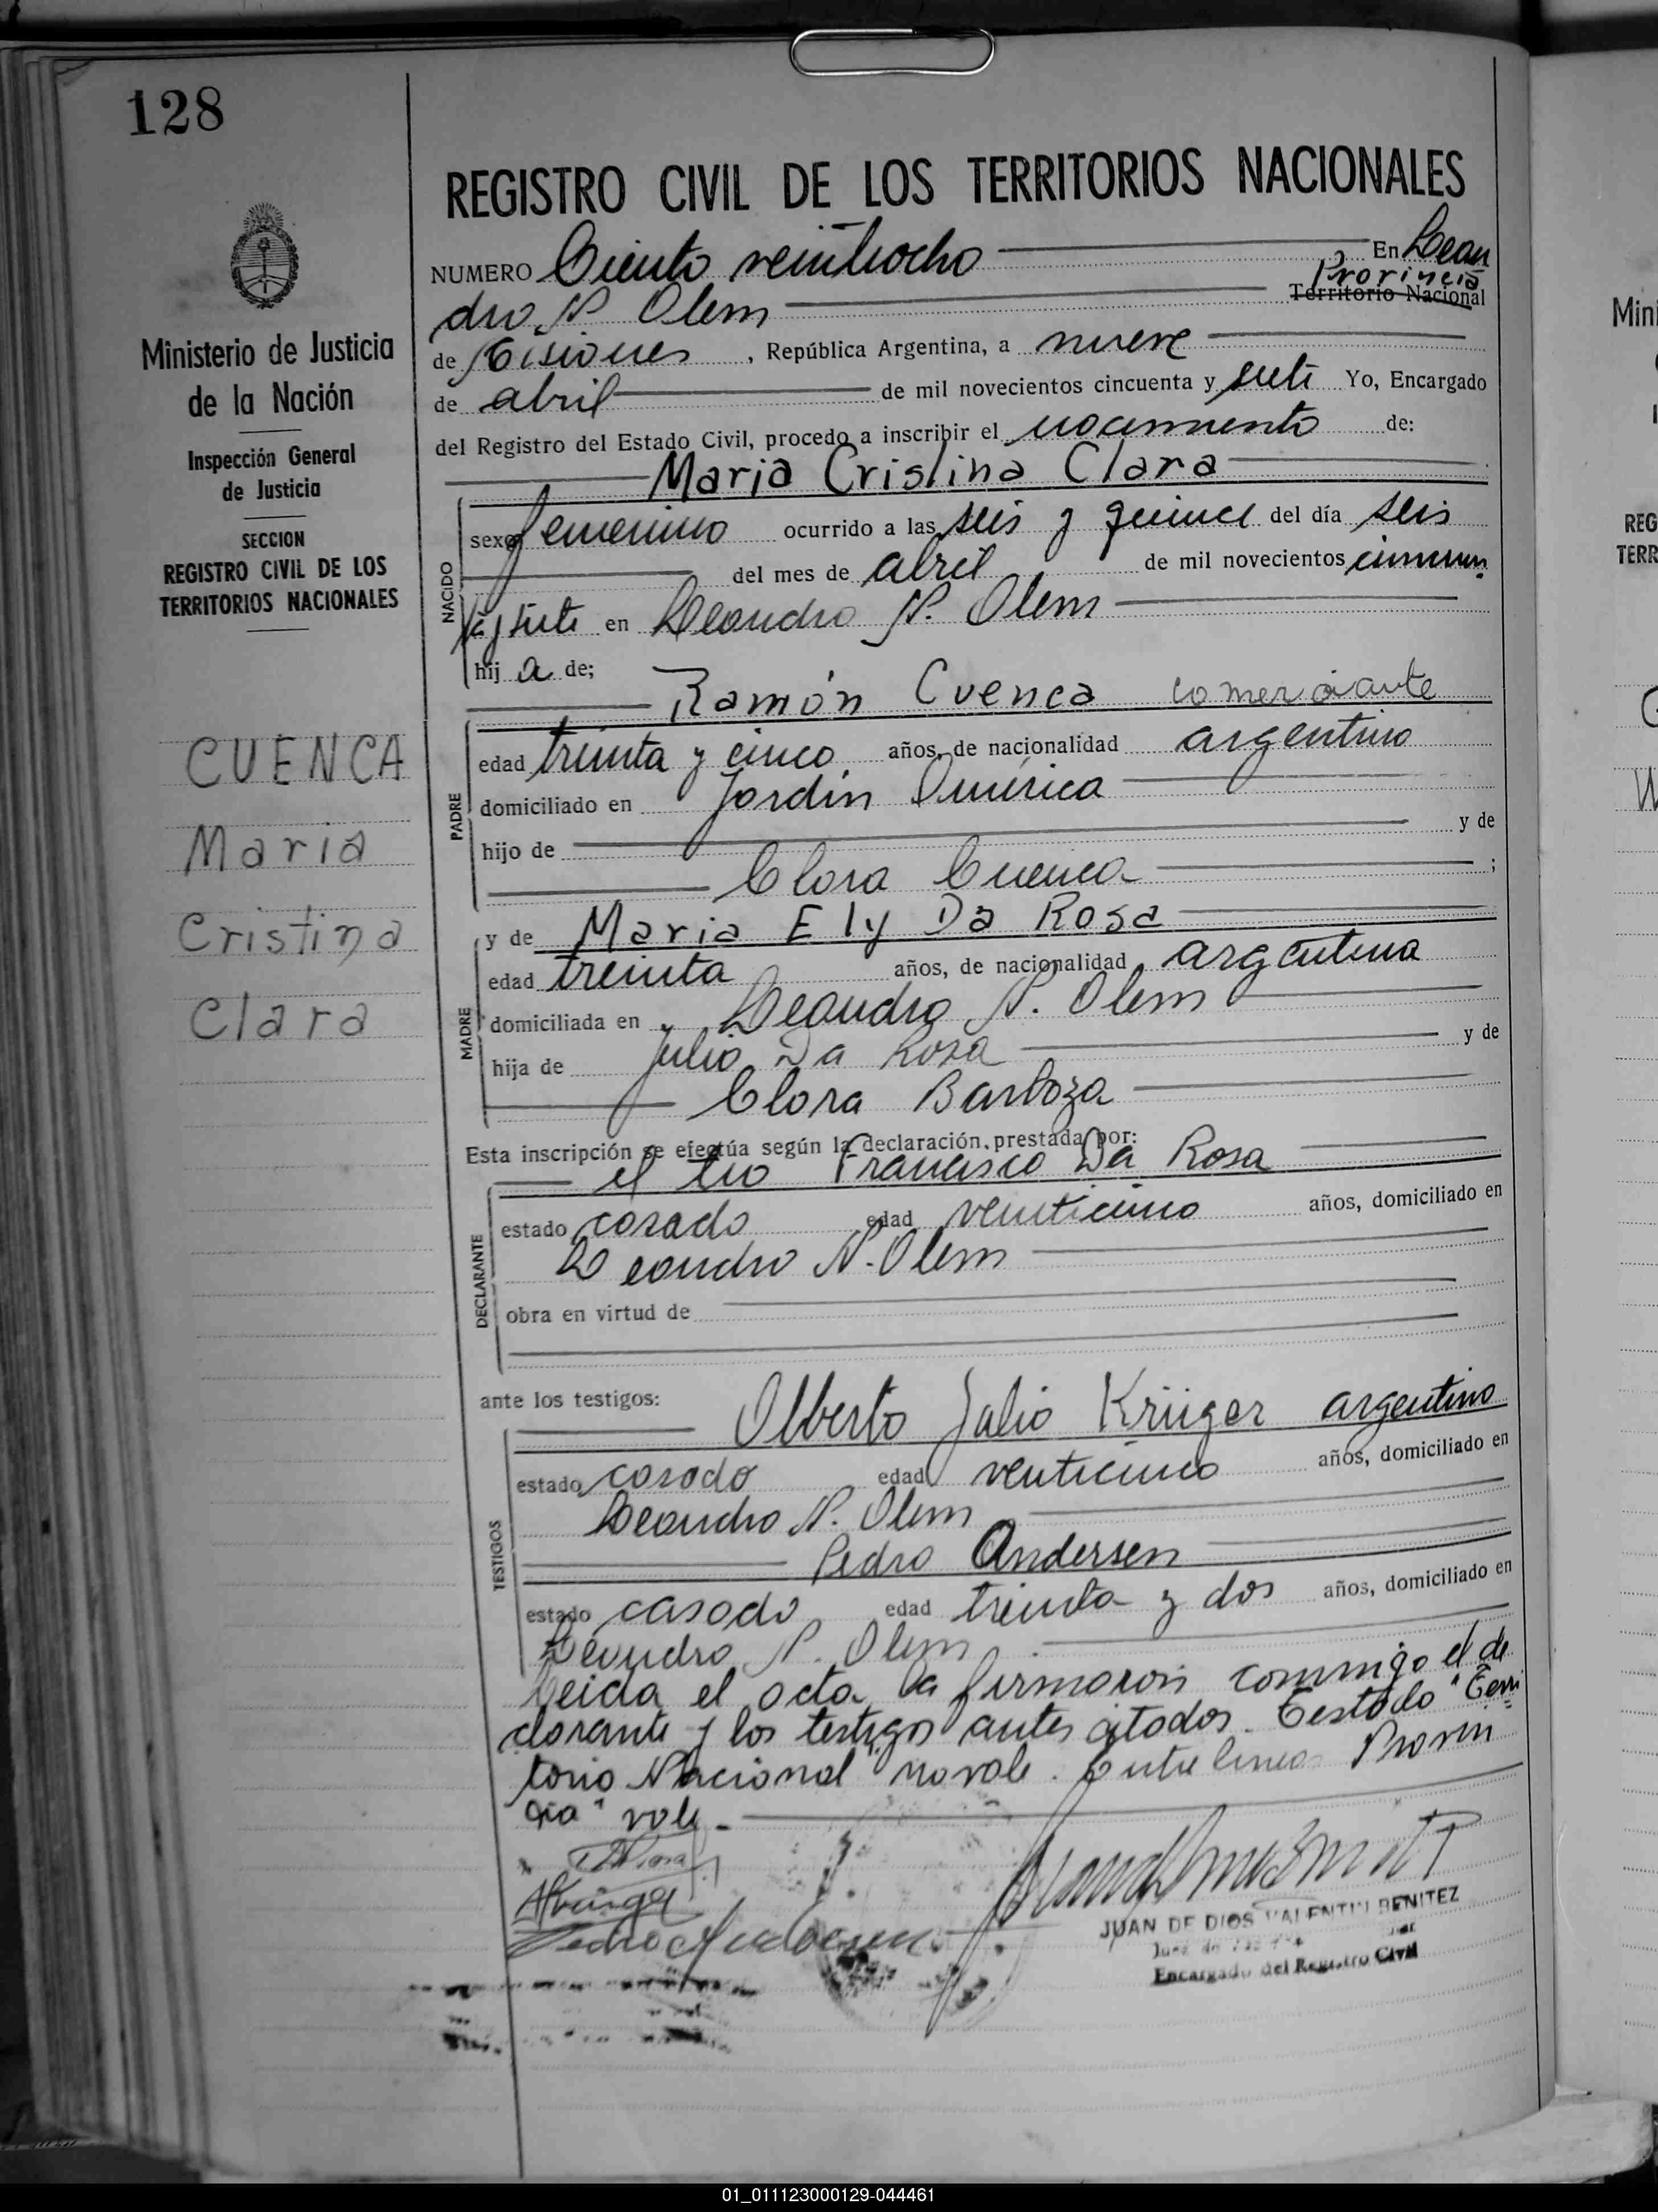 128
REGISTRO CIVIL DE LOS TERRITORIOS NACIONALES
Ministerio de Justicia
de la Nación
Inspección General
de Justicia
SECCION
REGISTRO CIVIL DE LOS
TERRITORIOS NACIONALES
CUENCA
Maria
Cristina
Clara
NUMERO Ciento veintiocho En Lean
Provincia
dro N Alem Territorio Nacional
de Misiones, República Argentina, a nueve
de abril de mil novecientos cincuenta y siete Yo, Encargado
del Registro del Estado Civil, procedo a inscribir el nacimiento de:
Maria Cristina Clara
NACIDO
sexo femenino ocurrido a las seis y quince del día seis
del mes de abril de mil novecientos cincuen
ta y siete en Leandro N. Alem
hij a de;
Ramón Cuenca comerciante
PADRE
edad treinta y cinco años, de nacionalidad argentino
domiciliado en Jardín América
hijo de y de
Clara Cuenca ;
MADRE
y de Maria Ely Da Rosa
edad treinta años, de nacionalidad argentina
domiciliada en Leandro N. Alem
hija de Julio Da Rosa y de
Clara Barboza
Esta inscripción se efectúa según la declaración prestada por:
el tio Francisco Da Rosa
DECLARANTE
estado casado edad venticinco años, domiciliado en
Leandro N. Alem
obra en virtud de
ante los testigos:
Alberto Julio Krüger argentino
TESTIGOS
estado casado edad venticinco años, domiciliado en
Leandro N. Alem
Pedro Andersen
estado casado edad treinta y dos años, domiciliado en
Leandro N. Alem
Leida el acta la firmaron conmigo el de
clarante y los testigos antes citados. Testado "Terri
torio Nacional" no vale. Entre lineas Provin
cia" vale.
Pedro Andersen
JUAN DE DIOS VALENTIN BENITEZ
Encargado del Registro Civil
Mini
REG
TERR
01_011123000129-044461